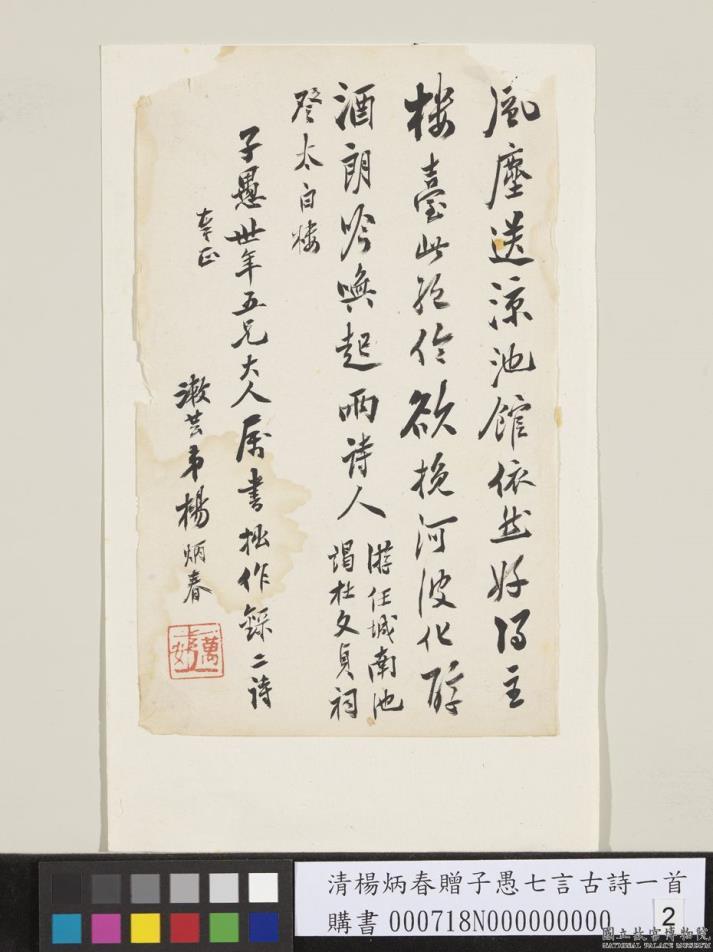 風塵送涼池館依然好得主
楼臺此絕倫欲挽河波化醇
酒朗吟喚起兩詩人
游任城南池
謁杜文貞祠
登太白楼
子愚世年五兄大人属書拙作録二詩
正
漱芸弟楊炳春
清楊炳春贈子愚七言古詩一首
購書 000718N000000000
2
國立故宮博物院
NATIONAL PALACE MUSEUM